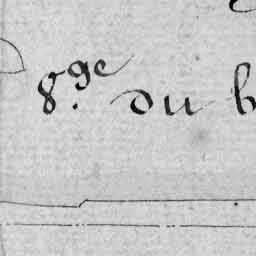 8.ge du b